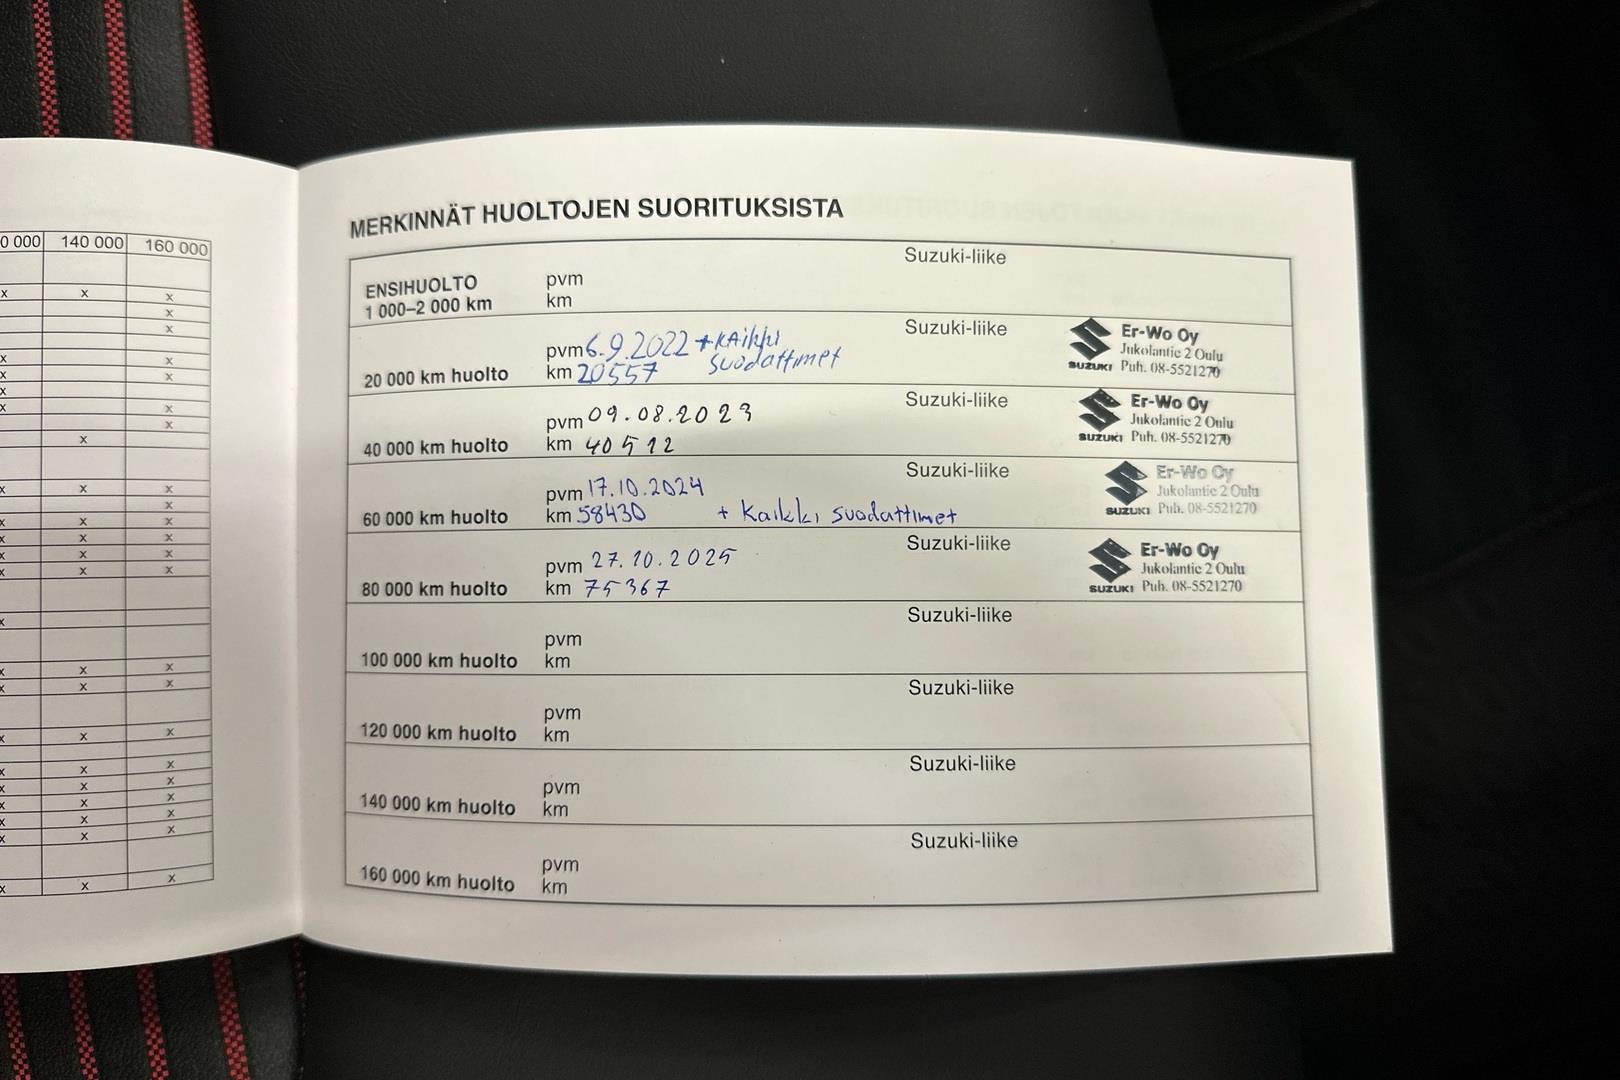 0 000 140 000 160 000
MERKINNÄT HUOLTOJEN SUORITUKSISTA
ENSIHUOLTO
1 000–2 000 km
pvm
km
Suzuki-liike
20 000 km huolto
pvm 6.9.2022 + KAikki
suodattimet
km 20557
Suzuki-liike
Er-Wo Oy
Jukolantie 2 Oulu
SUZUKI Puh. 08-5521270
40 000 km huolto
pvm 09.08.2023
km 40512
Suzuki-liike
Er-Wo Oy
Jukolantie 2 Oulu
SUZUKI Puh. 08-5521270
60 000 km huolto
pvm 17.10.2024
km 58430 + Kaikki suodattimet
Suzuki-liike
Er-Wo Oy
Jukolantie 2 Oulu
SUZUKI Puh. 08-5521270
80 000 km huolto
pvm 27.10.2025
km 75367
Suzuki-liike
Er-Wo Oy
Jukolantie 2 Oulu
SUZUKI Puh. 08-5521270
100 000 km huolto
pvm
km
Suzuki-liike
120 000 km huolto
pvm
km
Suzuki-liike
140 000 km huolto
pvm
km
Suzuki-liike
160 000 km huolto
pvm
km
Suzuki-liike